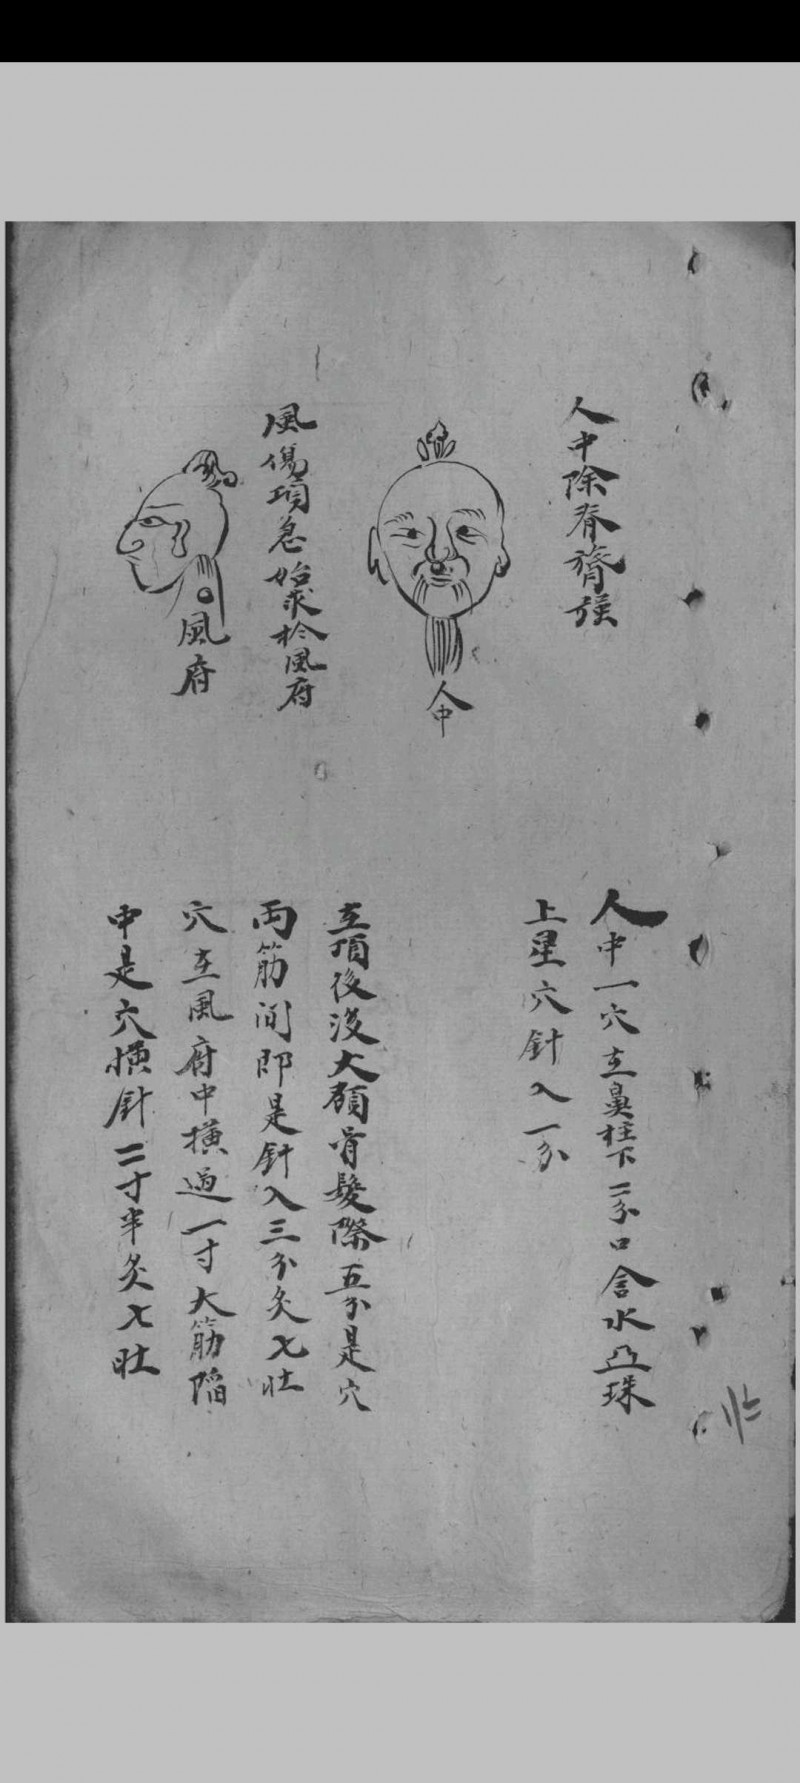 人中除脊膂強
人中
風傷項急始求於風府
風府
人中一穴在鼻柱下二分口含水凸珠
上星穴針入一分
在頂後後大顧骨髮際五分是穴
両筋间即是針入三分灸七壮
穴在風府中横過一寸大筋陷
中是穴横針二寸半灸七壮